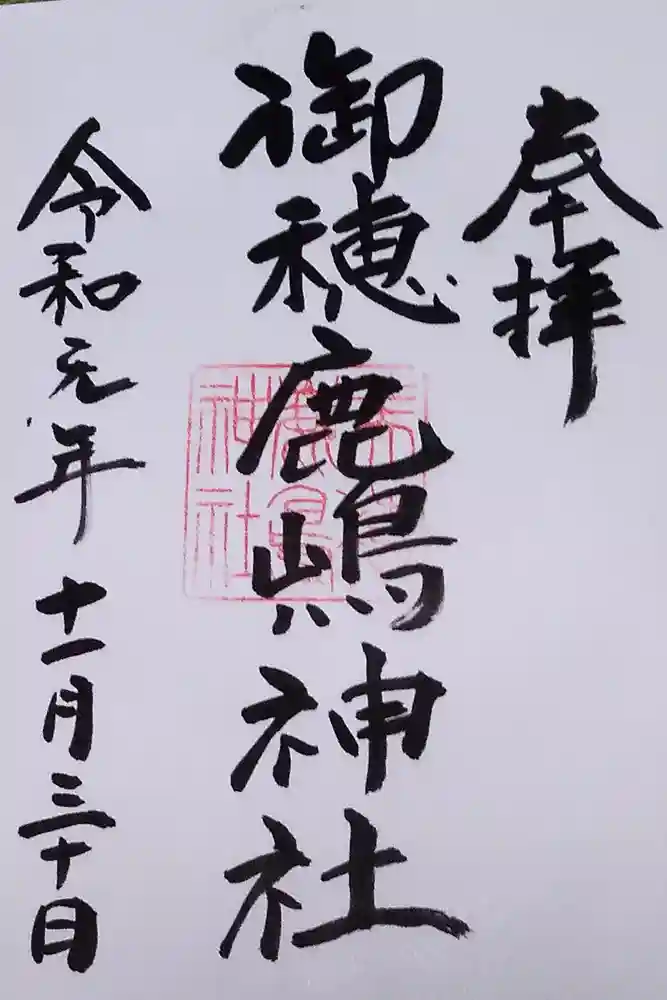 奉拝
御穂鹿嶋神社
令和元年十一月三十日